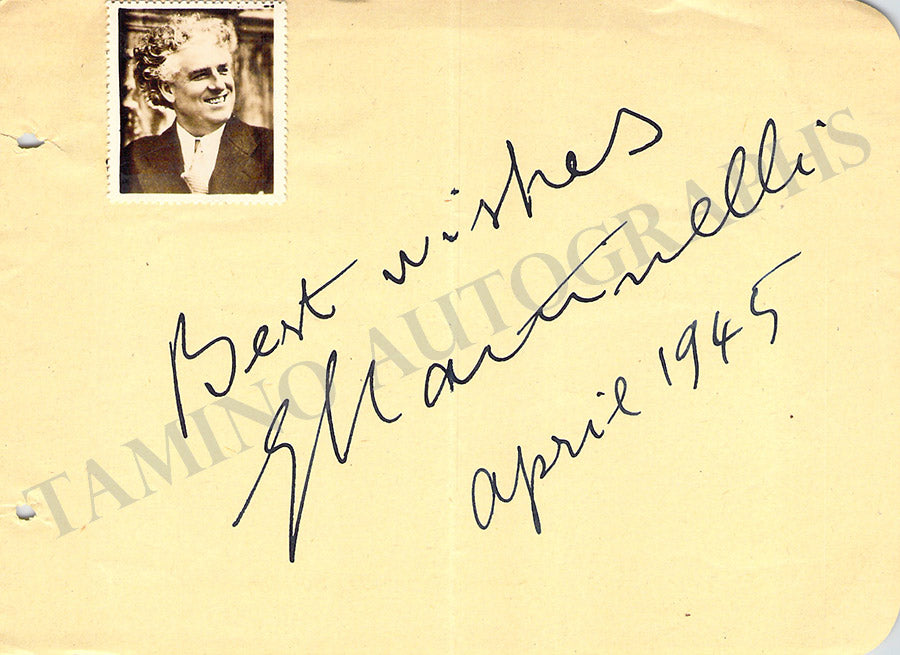 Best wishes
GMartinelli
april 1945
TAMINO AUTOGRAPHS